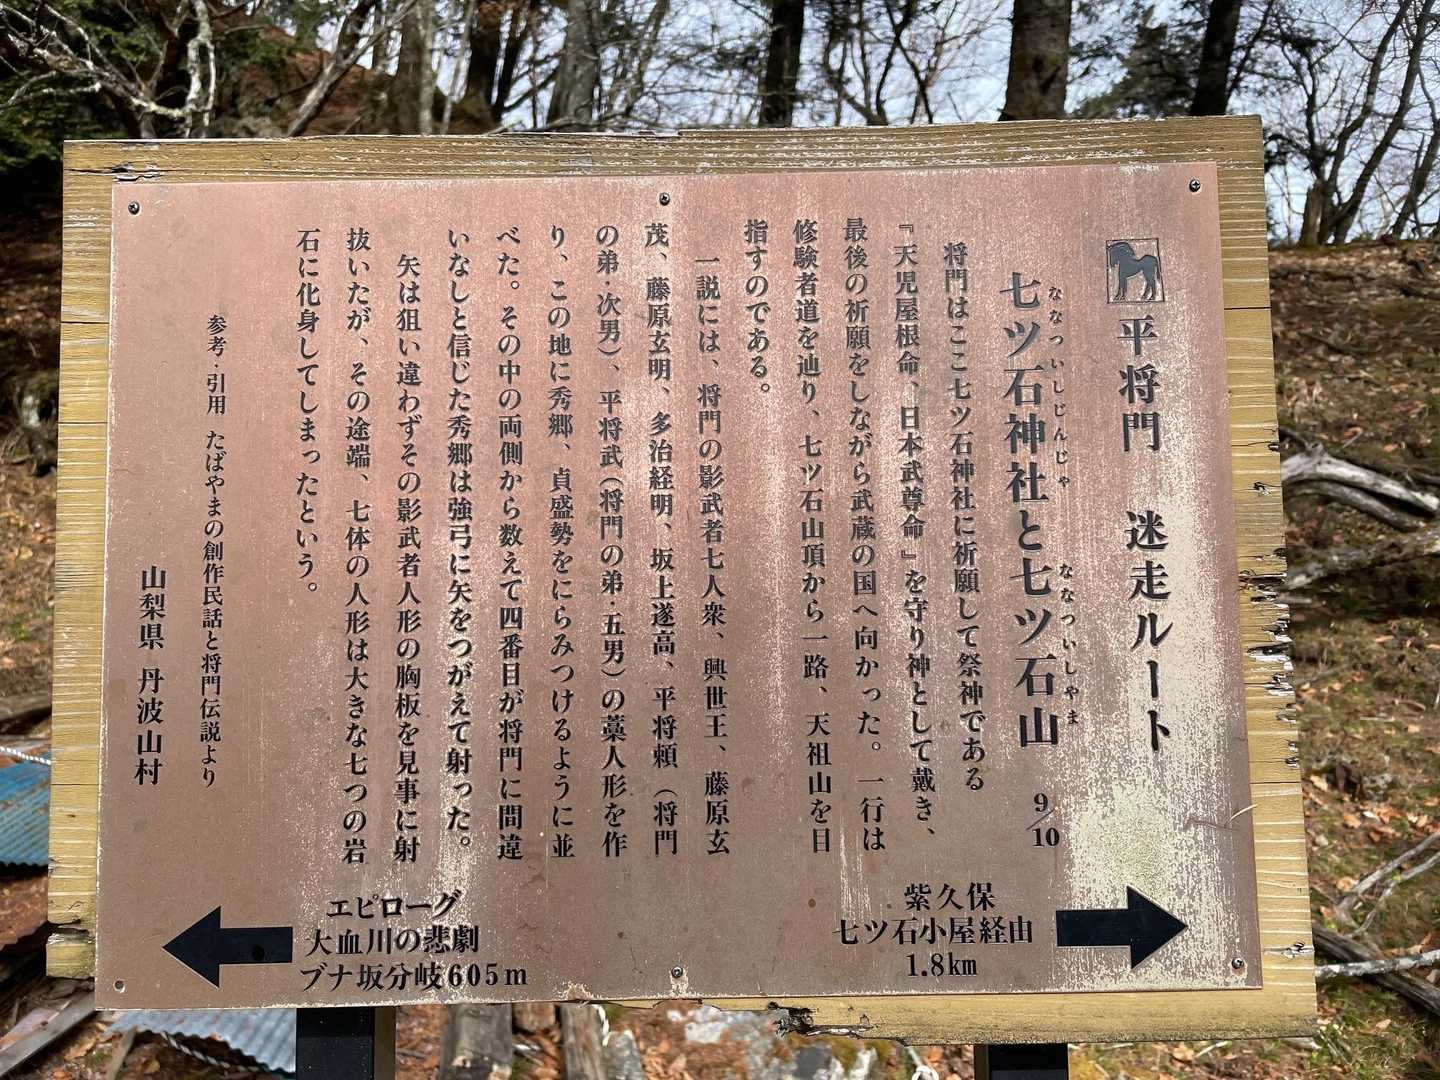 平将門　迷走ルート
ななついしじんじゃ　ななついしやま
七ツ石神社と七ツ石山　9/10
将門はここ七ツ石神社に祈願して祭神である
『天児屋根命、日本武尊命』を守り神として戴き、
最後の祈願をしながら武蔵の国へ向かった。一行は
修験者道を辿り、七ツ石山頂から一路、天祖山を目
指すのである。
一説には、将門の影武者七人衆、興世王、藤原玄
茂、藤原玄明、多治経明、坂上遂高、平将頼（将門
の弟・次男）、平将武（将門の弟・五男）の藁人形を作
り、この地に秀郷、貞盛勢をにらみつけるように並
べた。その中の両側から数えて四番目が将門に間違
いなしと信じた秀郷は強弓に矢をつがえて射った。
矢は狙い違わずその影武者人形の胸板を見事に射
抜いたが、その途端、七体の人形は大きな七つの岩
石に化身してしまったという。
参考・引用　たばやまの創作民話と将門伝説より
山梨県　丹波山村
紫久保
七ツ石小屋経由
1.8km
エピローグ
大血川の悲劇
ブナ坂分岐605m